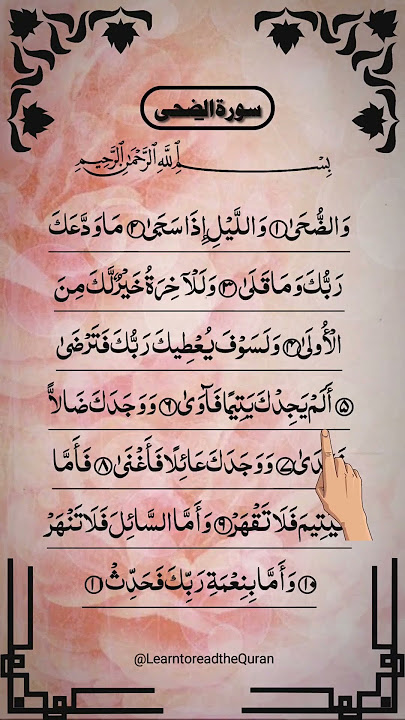 سورة الضحى
بِسْمِ اللَّهِ الرَّحْمَٰنِ الرَّحِيمِ
وَالضُّحَىٰ ١ وَاللَّيْلِ إِذَا سَجَىٰ ٢ مَا وَدَّعَكَ
رَبُّكَ وَمَا قَلَىٰ ٣ وَلَلْآخِرَةُ خَيْرٌ لَّكَ مِنَ
الْأُولَىٰ ٤ وَلَسَوْفَ يُعْطِيكَ رَبُّكَ فَتَرْضَىٰ
٥ أَلَمْ يَجِدْكَ يَتِيمًا فَآوَىٰ ٦ وَوَجَدَكَ ضَالًّا
٧ وَوَجَدَكَ عَائِلًا فَأَغْنَىٰ ٨ فَأَمَّا
فَلَا تَقْهَرْ ٩ وَأَمَّا السَّائِلَ فَلَا تَنْهَرْ
١٠ وَأَمَّا بِنِعْمَةِ رَبِّكَ فَحَدِّثْ ١١
@LearntoreadtheQuran